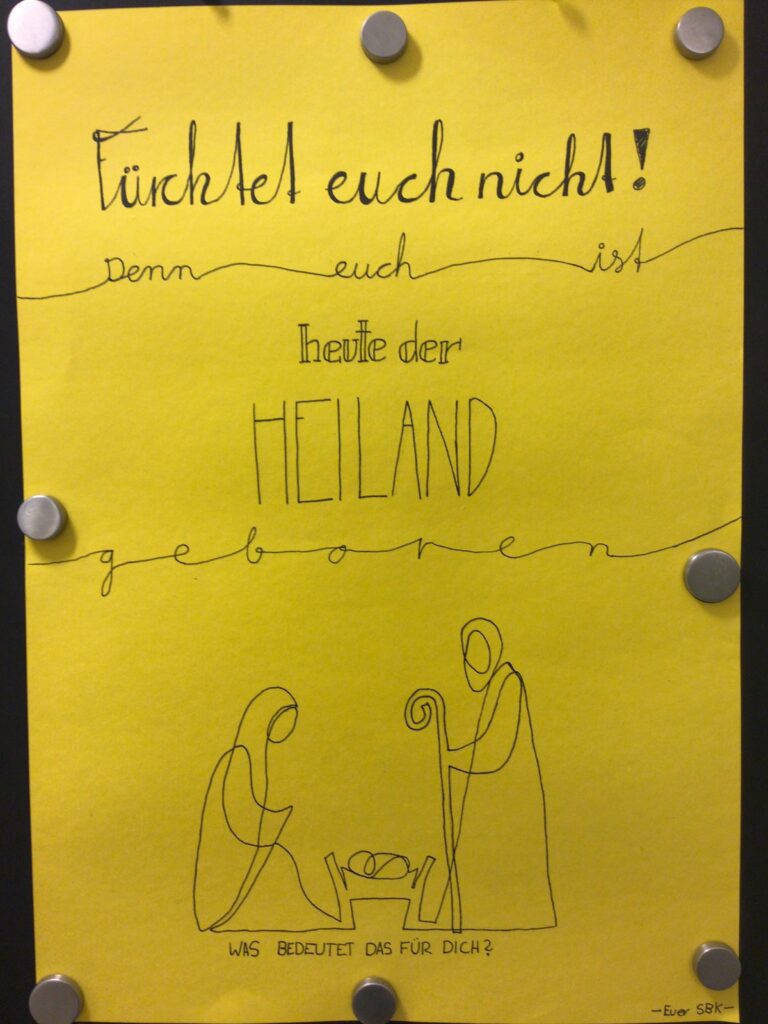 Fürchtet euch nicht!
Denn euch ist
heute der
HEILAND
geboren
WAS BEDEUTET DAS FÜR DICH?
-Euer SBK-